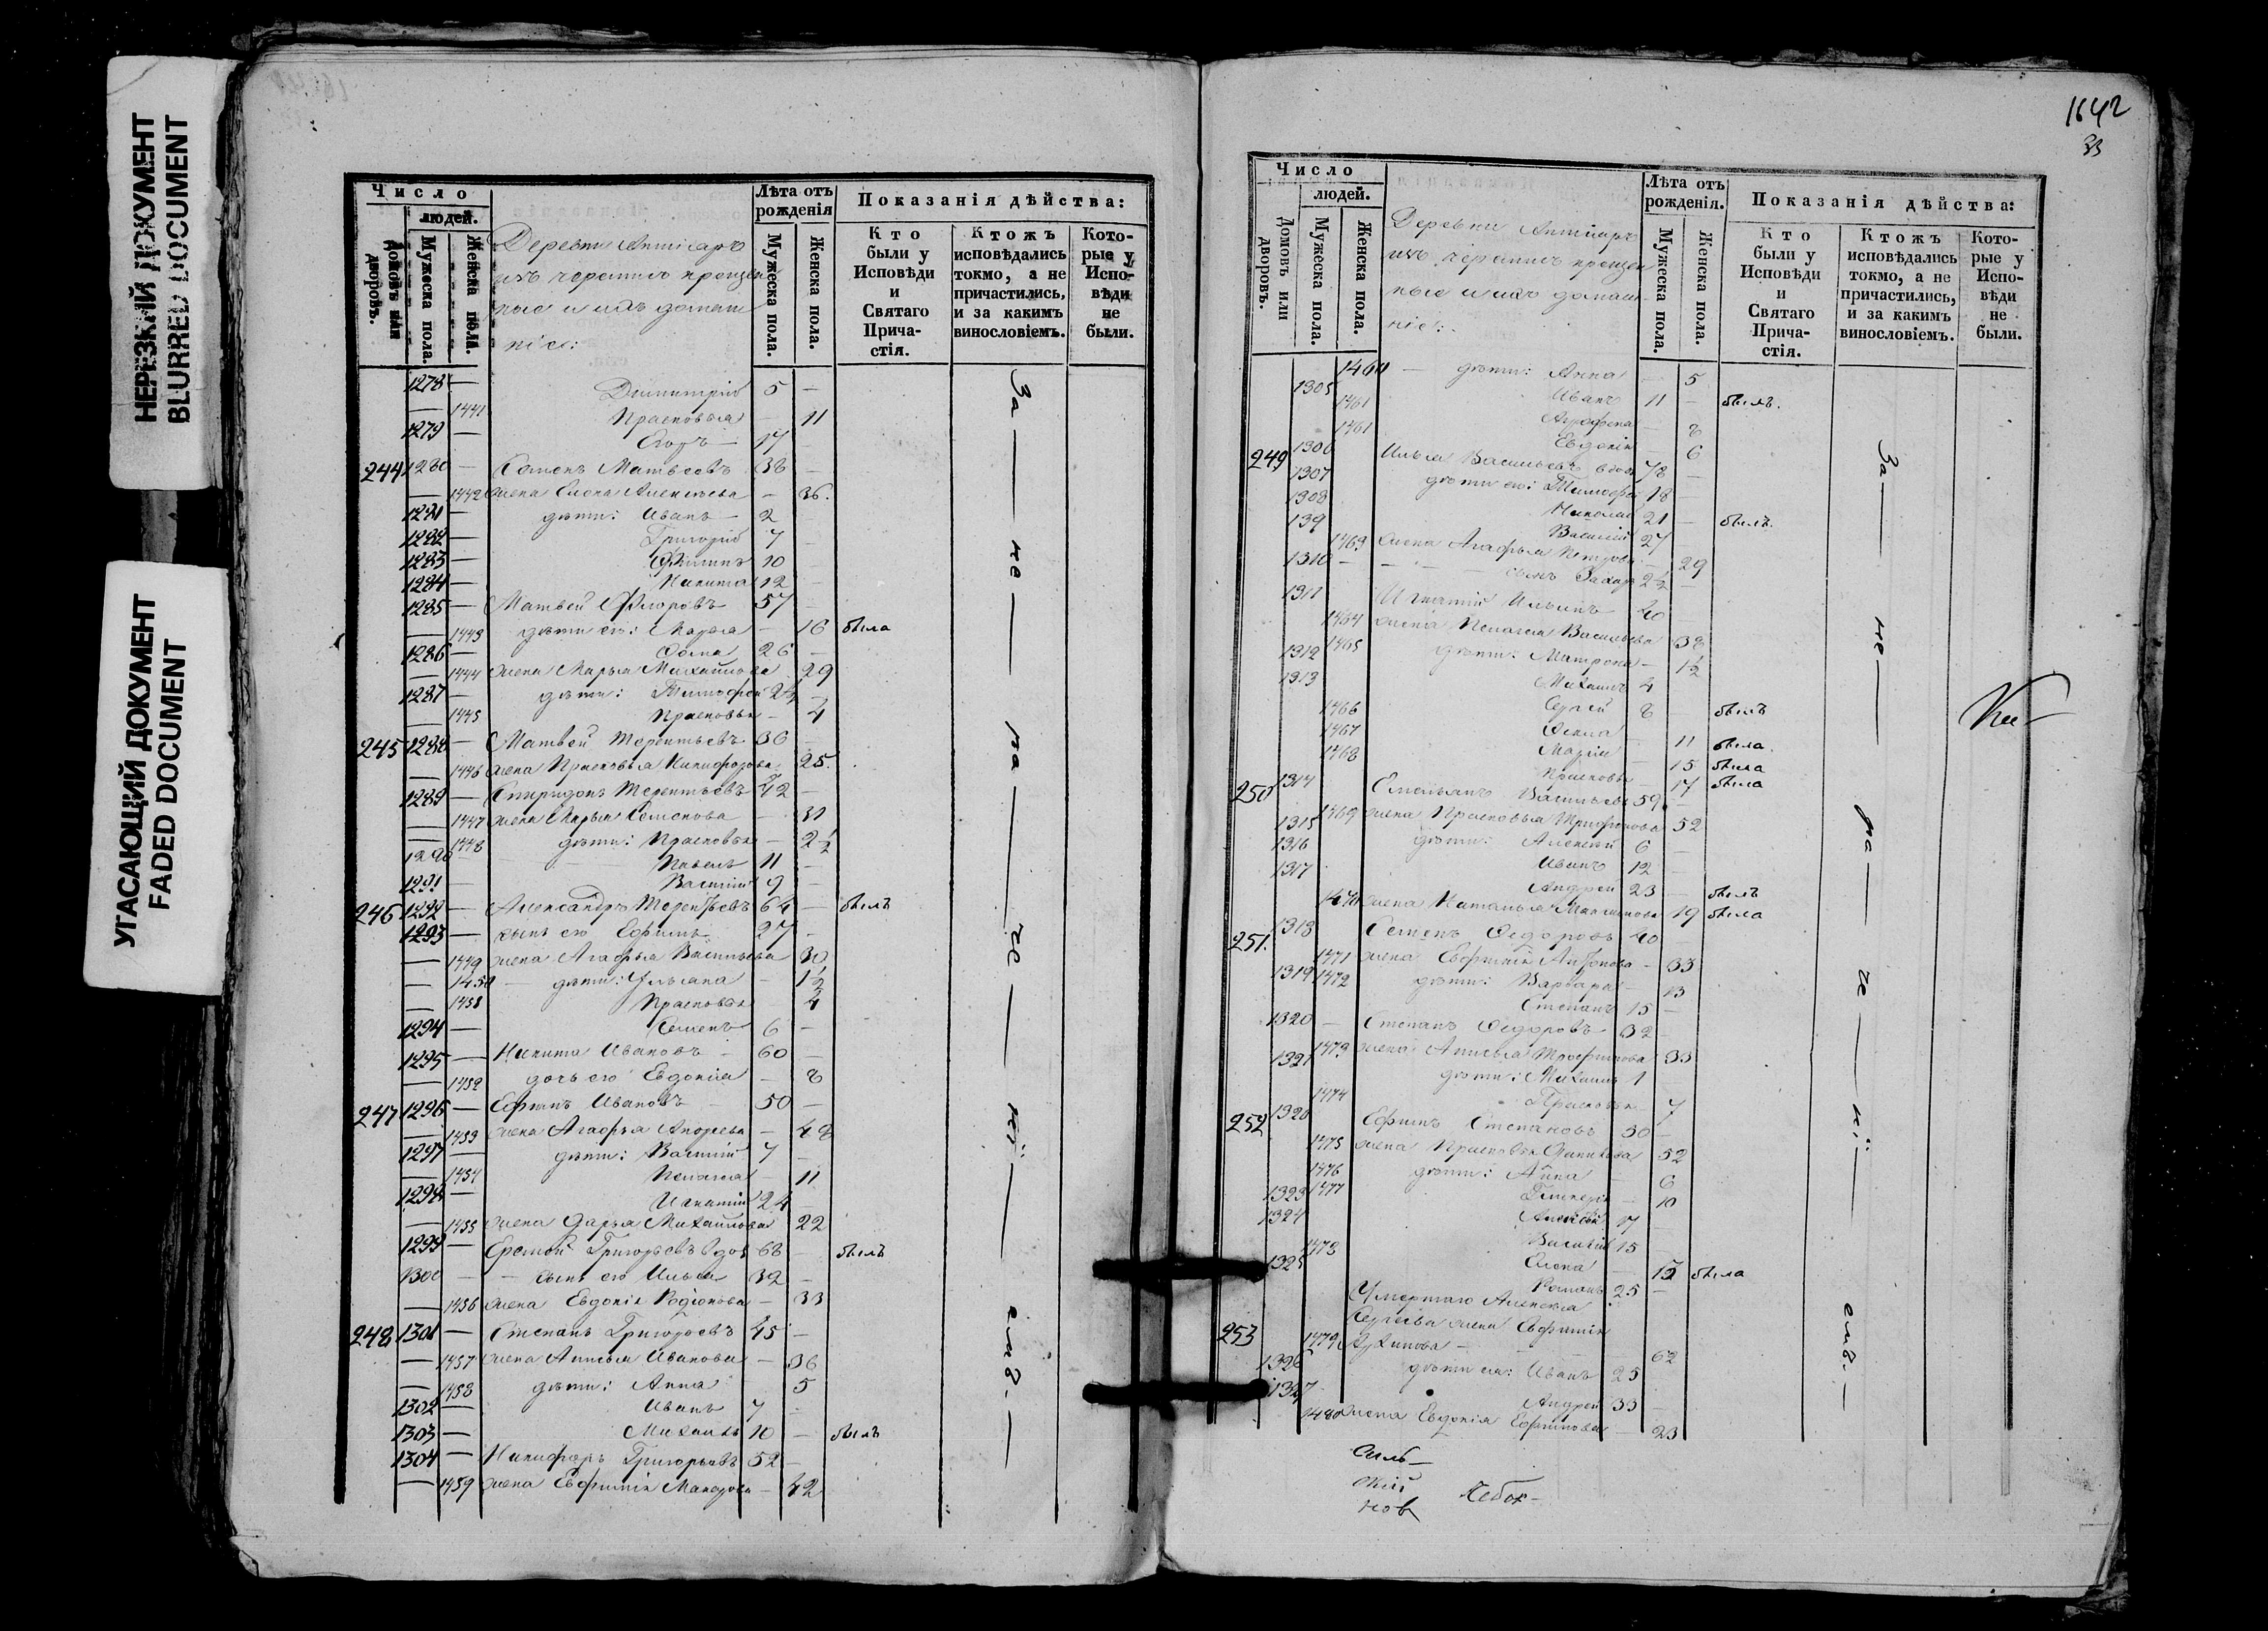 НЕРЕЗКИЙ ДОКУМЕНТ
BLURRED DOCUMENT
УГАСАЮЩИЙ ДОКУМЕНТ
FADED DOCUMENT
Число
людей.
домовъ или дворовъ.
Мужеска пола.
Женска пола.
Деревни
Лѣта отъ рожденія
Мужеска пола.
Женска пола.
Показанія дѣйства:
Кто были у Исповѣди и Святаго Прича-стія.
Ктожъ исповѣдались токмо, а не причастились, и за какимъ винословіемъ.
Кото-рые у Испо-вѣди не были.
1278 — Димитрій 5 —
— 1441 Прасковья — 11
1279 — Егоръ — 17
244 1280 — Семенъ Матвеевъ 38 —
— 1442 жена Елена Алексеева — 36.
1281 — дѣти: Иванъ — 2
1282 — Григорій 7
1283 — Филипъ 10
1284 — Никита 12
1285 — Матвей 57
— 1443 дѣти его: Марья — 16 была
1286 — Ѳома 26 —
— 1444 жена Марья Михайлова 29
1287 — дѣти: Тимофей 2½
— 1445 Прасковья — 4
245 1288 — Матвей Терентьевъ 36 —
— 1446 жена Прасковья Никифорова 25.
1289 — Спиридонъ Терентьевъ 42 —
— 1447 жена Марья Семенова — 31
— 1448 дѣти: Прасковья — 2½
1290 Павелъ 11 —
1291 — Василій 9 —
246 1292 — Александръ Терентьевъ 64 — былъ
1293 — сынъ его Ефимъ 27 —
— 1449 жена Агафья Васильева 30
— 1450 — дѣти: Ульяна — 1½
— 1451 Прасковья — 4
1294 — Семенъ 6 —
1295 — Никита Ивановъ — 60 —
— 1452 дочь его Евдокія — 8
247 1296 — Ефимъ Ивановъ — 50 —
— 1453 жена Агафья Андреева — 48
1297 — дѣти: Василій 7 —
— 1454 Пелагея — 11
1298 — Игнатій 24 —
— 1455 жена Дарья Михайлова 22
1299 — Еремей Григорьевъ вдов 68 — былъ
1300 — — сынъ его Илья 32 —
— 1456 жена Евдокія Родіонова — 33
248 1301 — Степанъ Григорьевъ 45 —
— 1457 жена Анисья Иванова — 36
— 1458 дѣти: Анна 5
1302 — Иванъ 7 —
1303 — Михаилъ 10 — былъ
1304 — Никифоръ Григорьевъ 52 —
— 1459 жена Евфимія Макарова — 42
За — не — ра — че — ні — емъ. —
1642
33
Число
людей.
Домовъ или дворовъ.
Мужеска пола.
Женска пола.
Деревни
Лѣта отъ рожденія.
Мужеска пола.
Женска пола.
Показанія дѣйства:
Кто были у Исповѣди и Святаго Прича-стія.
Ктожъ исповѣдались токмо, а не причастились, и за какимъ винословіемъ.
Кото-рые у Испо-вѣди не были.
1460 — дѣти: Анна — 5
1305 Иванъ 11 — былъ.
1461 Агрофена — 8
1461 Евдокія — 6
249 1306 Илья Васильевъ вдов 78 —
1307 дѣти его: Тимофей 18 —
1308 Николай 21 — былъ
139 Василій 27 —
1463 жена Агафья Петрова — 29
1310 — сынъ Захаръ 2½ —
1311 Игнатій Ильинъ 40 —
1464 жена Пелагея Васильева 38
1312 1465 дѣти: Матрена — 1½
1313 Михаилъ 4
Сергей 8 былъ
1466 11 была.
1467 Марія — 15 была
1468 Прасковья — 17 была
250 1314 Емельянъ Васильевъ 59 —
1469 жена Прасковья Трифонова 52
1315 дѣти: Алексей 6 —
1316 Иванъ 12 —
1317 Андрей 23 — былъ
1470 жена Наталья Максимова 19 была
251. 1318 Семенъ Ѳедоровъ 40 —
1471 жена Евфимія Антонова — 33
1319 1472 дѣти: Варвара — 13
Степанъ 15 —
1320 — Степанъ Ѳедоровъ 32 —
1473 жена Анисья Трофимова 33
1321 дѣти: Михаилъ 1
1474 Прасковья 7
252 1320 Ефимъ Степановъ 50 —
1475 жена Прасковья 52
1476 дѣти: Анна — 6
1323 1477 Гликерія — 10
1324 Алексей 17 —
Василій 15 —
1478 Елена — 15 была
1325 Романъ 25 —
Умершаго Алексея
Сергеева жена Евфимія
253 1479 — 62
1326 дѣти ея: Иванъ 25
1327 Андрей 33 —
1480 жена Евдокія Ефимова — 23
За — не — ра — че — ні — емъ. —